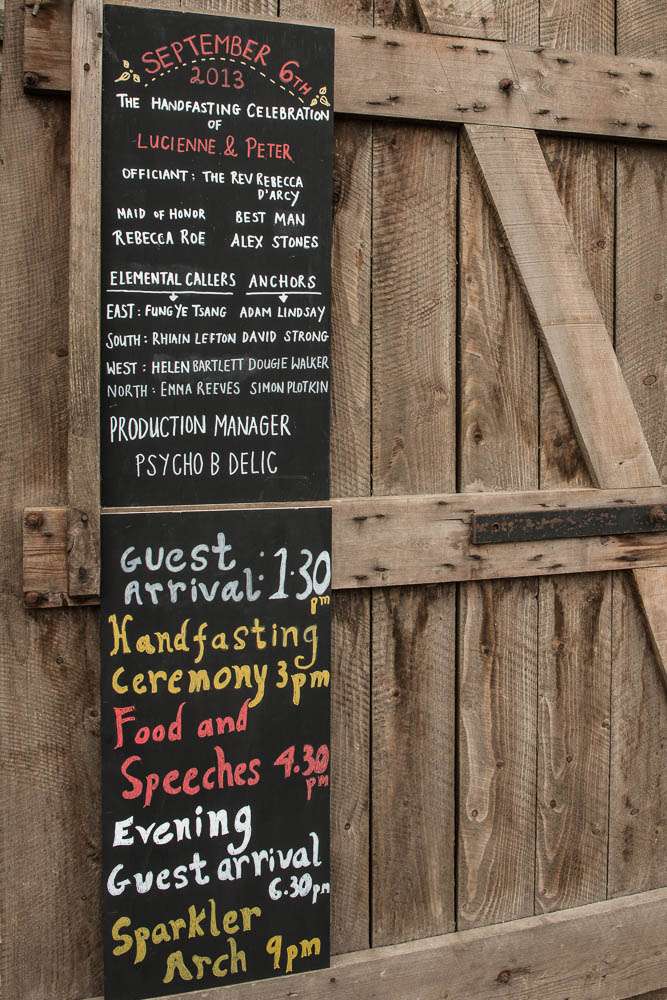 SEPTEMBER 6TH
2013
THE HANDFASTING CELEBRATION
OF
LUCIENNE & PETER
OFFICIANT : THE REV REBECCA
D'ARCY
MAID OF HONOR BEST MAN
REBECCA ROE ALEX STONES
ELEMENTAL CALLERS ANCHORS
EAST : FUNG YE TSANG ADAM LINDSAY
SOUTH : RHIAIN LEFTON DAVID STRONG
WEST : HELEN BARTLETT DOUGIE WALKER
NORTH : EMMA REEVES SIMON PLOTKIN
PRODUCTION MANAGER
PSYCHO B DELIC
Guest
Arrival : 1.30
pm
Handfasting
Ceremony 3pm
Food and
Speeches 4.30
pm
Evening
Guest arrival
6.30pm
Sparkler
Arch 9pm